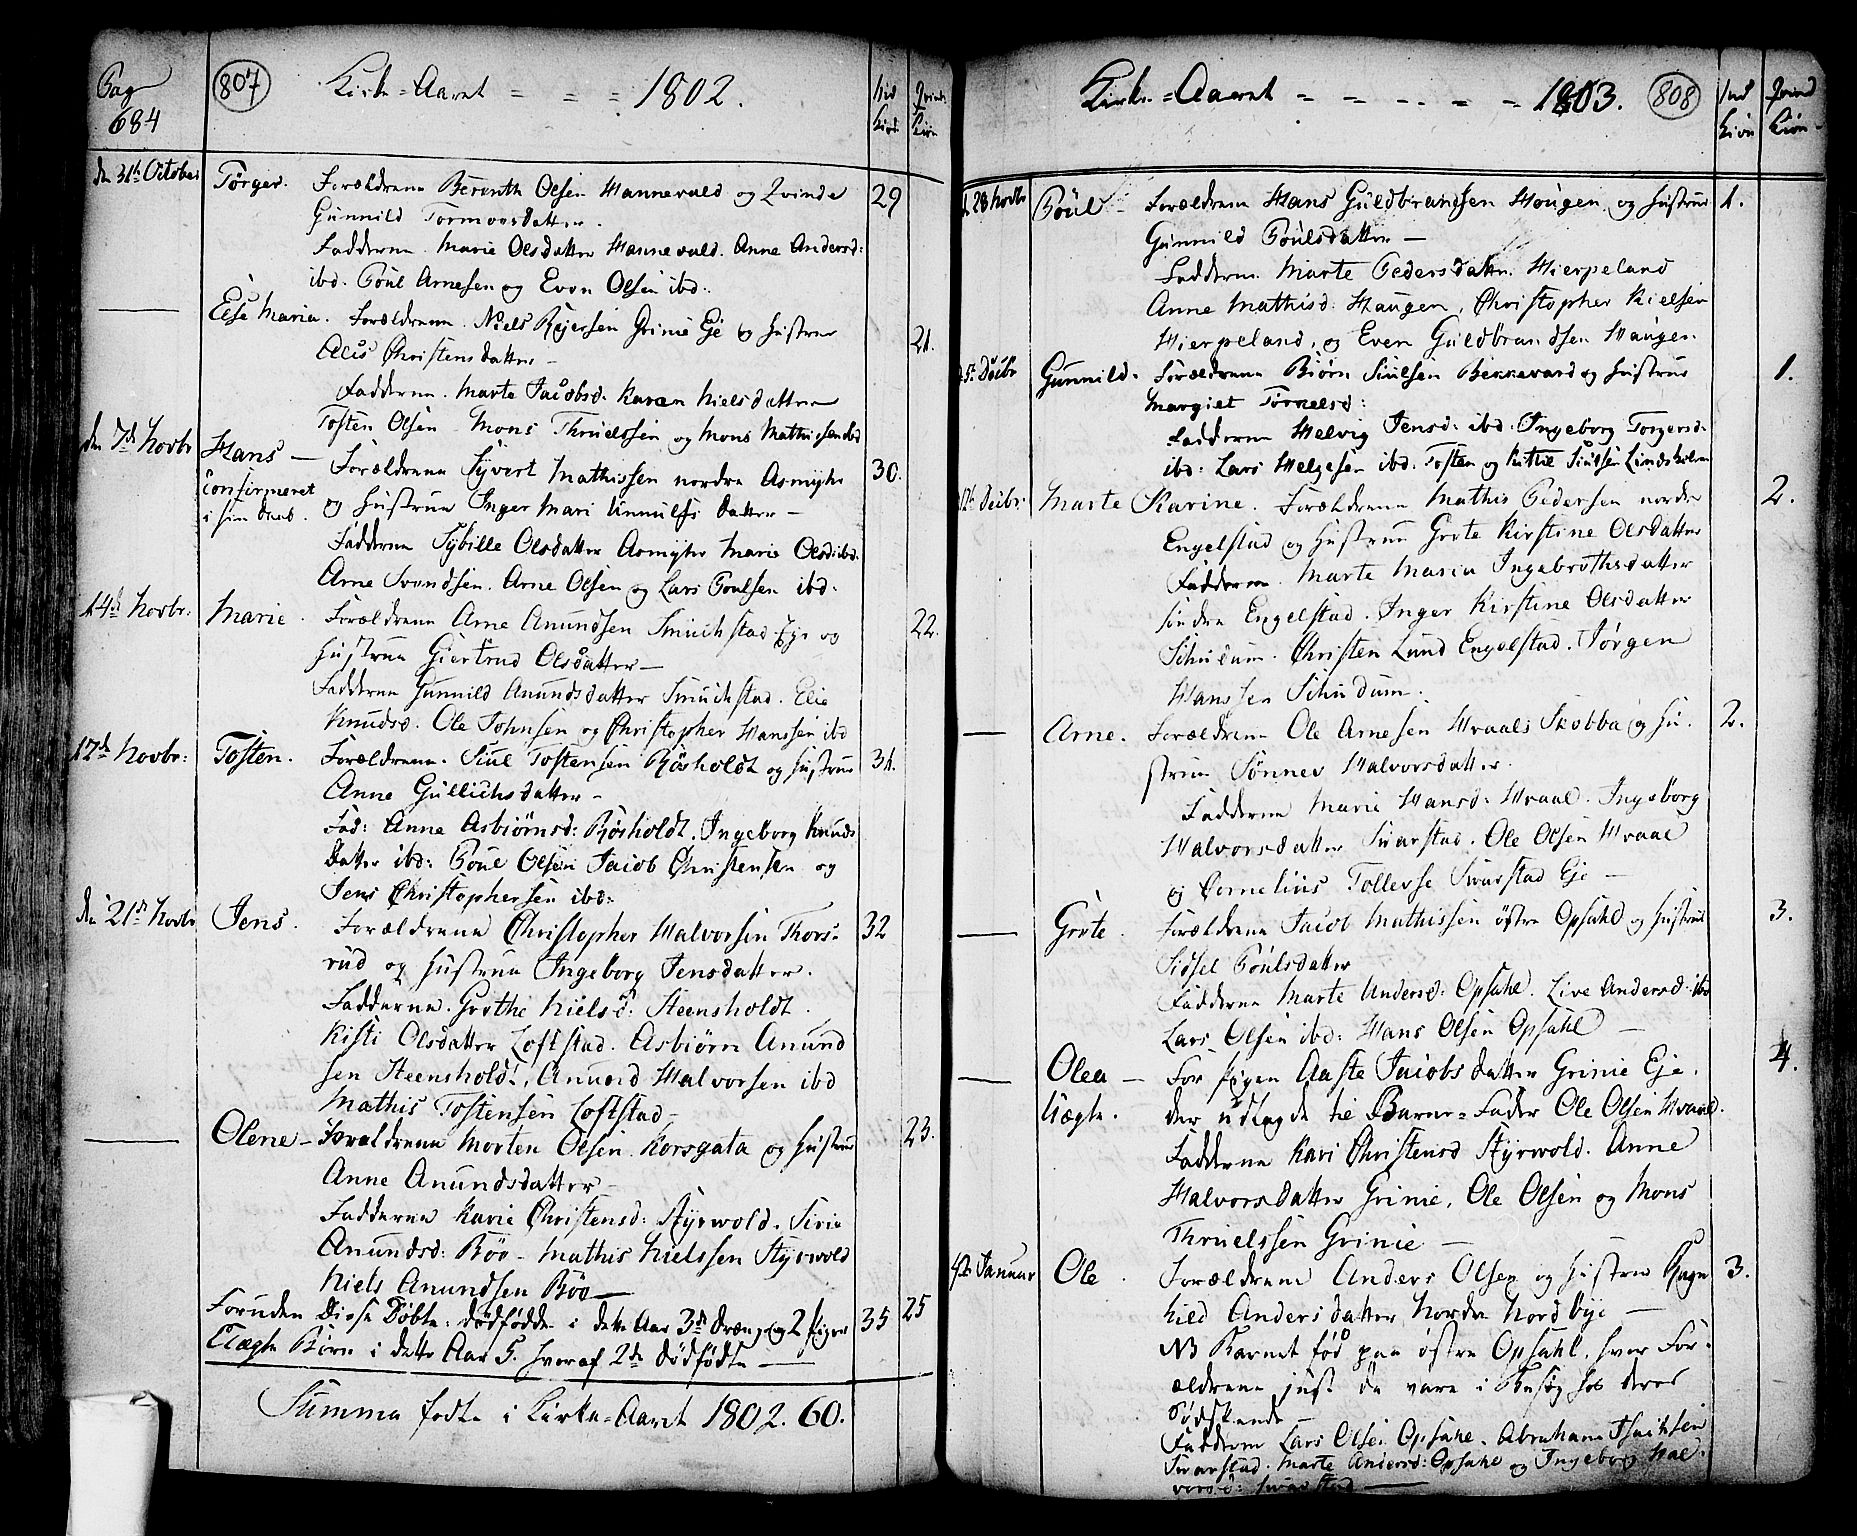 Pag
684
807
Kirke=Aaret = = = 1802.
Kiøn
Qvinde
Kiøn
den 31te October
Tørger.
Forældrene Berenth Olsen Hannevald og Qvinde
29
Gunnild Tormoorsdatter.
Fadderne. Marie Olsdatter Hannevald. Anne Andersd:
ibd. Poul Arnesen og Even Olsen ibd:
Else Maria.
Forældrene. Niels Rejersen Grinie Eje og Hustrue
21.
Alis Christensdatter –
Fadderne. Marte Jacobsd. Karen Nielsdatter
Tosten Olsen Mons Thruelssen og Mons Mathisen ibd
den 7de Novbr
Hans –
Forældrene Syvert Mathissen nordre Asmyhr
30.
Confirmeret
i sin Daab.
og Hustrue Inger Mari Unnulfs datter –
Fadderne Sybille Olsdatter Asmyhr Marie Olsd ibd.
Arne Svendsen. Arne Olsen og Lars Poulsen ibd.
14de Novbr:
Marie.
Forældrene Arne Anundsen Smuchstad Eje og
22.
Hustrue Giertrud Olsdatter –
Fadderne Gunnild Anundsdatter Smuchstad. Elie
Knudsd. Ole Johnsen og Christopher Hanssen ibd
17de Novbr:
Tosten.
Forældrene. Siul Tostensen Røsholdt og Hustrue
31.
Anne Gullichsdatter –
Fad: Anne Asbiørnsd: Røsholdt. Ingeborg Knuds
datter ibd: Poul Olsen Jacob Christensen og
Jens Christophersen ibd:
den 21de Novbr
Jens.
Forældrene Christopher Halvorsen Thors-
32
rud og Hustrue Ingeborg Jensdatter.
Fadderne. Grethe Nielsd: Steensholdt.
Kisti Olsdatter Loftstad. Asbiørn Anund
sen Steensholdt. Anund Halvorsen ibd
Mathis Tostensen Loftstad –
Olene –
Forældrene Morten Olsen Korsgata og Hustrue
23.
Anne Anundsdatter –
Fadderne Karie Christensd: Styrwold. Sirie
Anundsd: Böe – Mathis Nielssen Styrwold
Niels Anundsen Böe –
Foruden Disse Døbte. dødfødde i dette Aar 3de Dreng og 2 Piger
35
25
Uægte Børn i dette Aar 5. hvoraf 2de dødfødte –
Summa fødte i Kirke=Aaret 1802. 60.
Kirke=Aaret – – – – – 1803.
808
Kiøn
Qvind
Kiøn
d. 28 Novbr
Poul –
Forældrene Hans Guldbrandsen Hougen og Hustrue
1.
Gunnild Poulsdatter –
Fadderne. Marte Pedersdatter Hierpeland
Anne Mathisd: Haugen, Christopher Nielsen
Hierpeland, og Even Guldbrandsen Haugen.
5te Decbr
Gunnild.
Forældrene Biørn Siulsen Bekkevard og Hustrue
1.
Margiet Tornelsd:
Fadderne Helvig Jensd: ibd. Ingeborg Torgersd.
ibd: Lars Helgesen ibd. Tosten og Kittil Siulsen Lindsholm
12te Decbr.
Marte Karine.
Forældrene Mathis Pedersen nordre
2.
Engelstad og Hustrue Grete Kirstine Olsdatter
Fadderne. Marte Maria Ingebrethsdatter
søndre Engelstad. Inger Kirstine Olsdatter
Schudum. Christen Lund Engelstad. Jørgen
Hanssen Schudum.
Arne.
Forældrene Ole Arnesen Hvaals Skobba og Hu.
2.
strue Sønnev Halvorsdatter.
Fadderne Marie Hansd: Hvaal. Ingeborg
Halvorsdatter Svarstad. Ole Olsen Hvaal
og Cornelius Tollevse Svarstad Eje –
Grete.
Forældrene Jacob Mathissen østre Opsahl og Hustrue
3.
Sidsel Poulsdatter
Fadderne Marte Andersd: Opsahl. Live Andersd. ibd
Lars Olsen ibd: Hans Olsen Opsahl –
Olea –
For Pigen Aaste Jacobsdatter Grinie Eje.
4.
Uægte.
der udlagde til Barne=Fader Ole Olsen Hvaal.
Fadderne Kari Christensd Styrwold. Anne
Halvorsdatter Grinie, Ole Olsen og Mons
Thruelssen Grinie –
Januar
Ole.
Forældrene Anders Olsen og Hustrue Ragn
3.
hild Andersdatter Nordre Nordbye –
NB Barnet fød paa østre Opsahl, hvor For-
ældrene just da vare i Besøg hos deres
Sødskende
Fadderne Lars Olsen Opsahl. Abraham Isachsen
Svarstad. Marte Andersd: Opsahl og Ingeborg Hal-
vorsd: Svarstad –